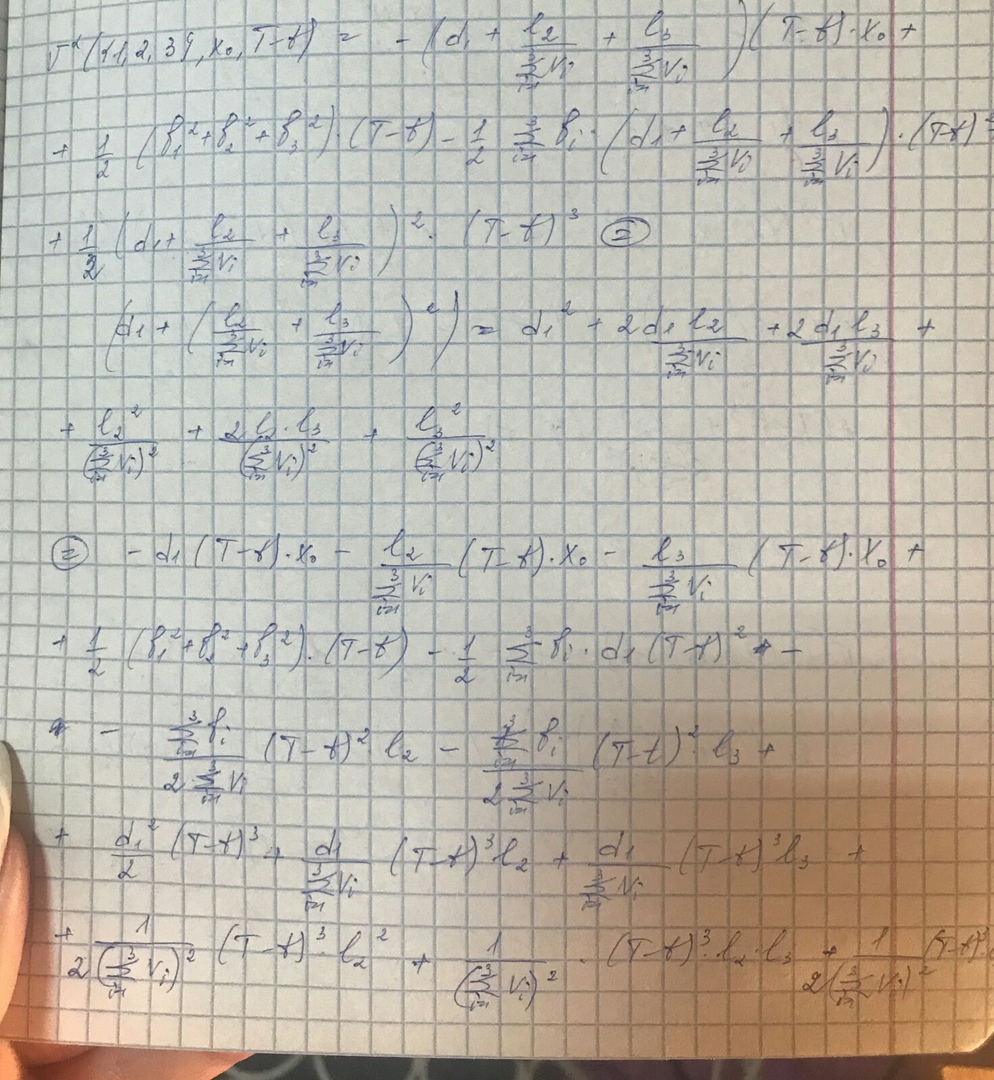 V^α({1,2,3}, x₀, T-t) = -(d₁ + l₂/∑_{i=1}^{3}Vᵢ + l₃/∑_{i=1}^{3}Vᵢ)(T-t)·x₀ +
+ 1/2 (b₁² + b₂² + b₃²)·(T-t) - 1/2 ∑_{i=1}^{3} bᵢ·(d₁ + l₂/∑_{i=1}^{3}Vᵢ + l₃/∑_{i=1}^{3}Vᵢ)·(T-t)²
+ 1/2 (d₁ + l₂/∑_{i=1}^{3}Vᵢ + l₃/∑_{i=1}^{3}Vᵢ)²·(T-t)³ ⊜
(d₁ + (l₂/∑_{i=1}^{3}Vᵢ + l₃/∑_{i=1}^{3}Vᵢ)²) = d₁² + 2d₁l₂/∑_{i=1}^{3}Vᵢ + 2d₁l₃/∑_{i=1}^{3}Vᵢ +
+ l₂²/(∑_{i=1}^{3}Vᵢ)² + 2l₂·l₃/(∑_{i=1}^{3}Vᵢ)² + l₃²/(∑_{i=1}^{3}Vᵢ)²
⊜ -d₁(T-t)·x₀ - l₂/∑_{i=1}^{3}Vᵢ (T-t)·x₀ - l₃/∑_{i=1}^{3}Vᵢ (T-t)·x₀ +
+ 1/2 (b₁² + b₂² + b₃²)·(T-t) - 1/2 ∑_{i=1}^{3} bᵢ·d₁(T-t)² -
- ∑_{i=1}^{3}bᵢ/2∑_{i=1}^{3}Vᵢ (T-t)² l₂ - ∑_{i=1}^{3}bᵢ/2∑_{i=1}^{3}Vᵢ (T-t)² l₃ +
+ d₁²/2 (T-t)³ + d₁/∑_{i=1}^{3}Vᵢ (T-t)³l₂ + d₁/∑_{i=1}^{3}Vᵢ (T-t)³l₃ +
+ 1/2(∑_{i=1}^{3}Vᵢ)² (T-t)³·l₂² + 1/(∑_{i=1}^{3}Vᵢ)² · (T-t)³·l₂·l₃ + 1/2(∑_{i=1}^{3}Vᵢ)² (T-t)³